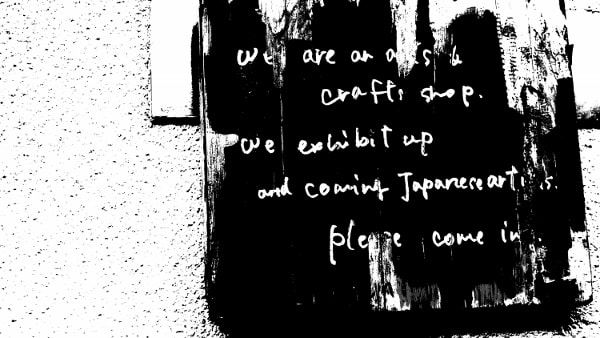 we are an arts &
crafts shop.
we exhibit up
and coming Japanese artists.
please come in.